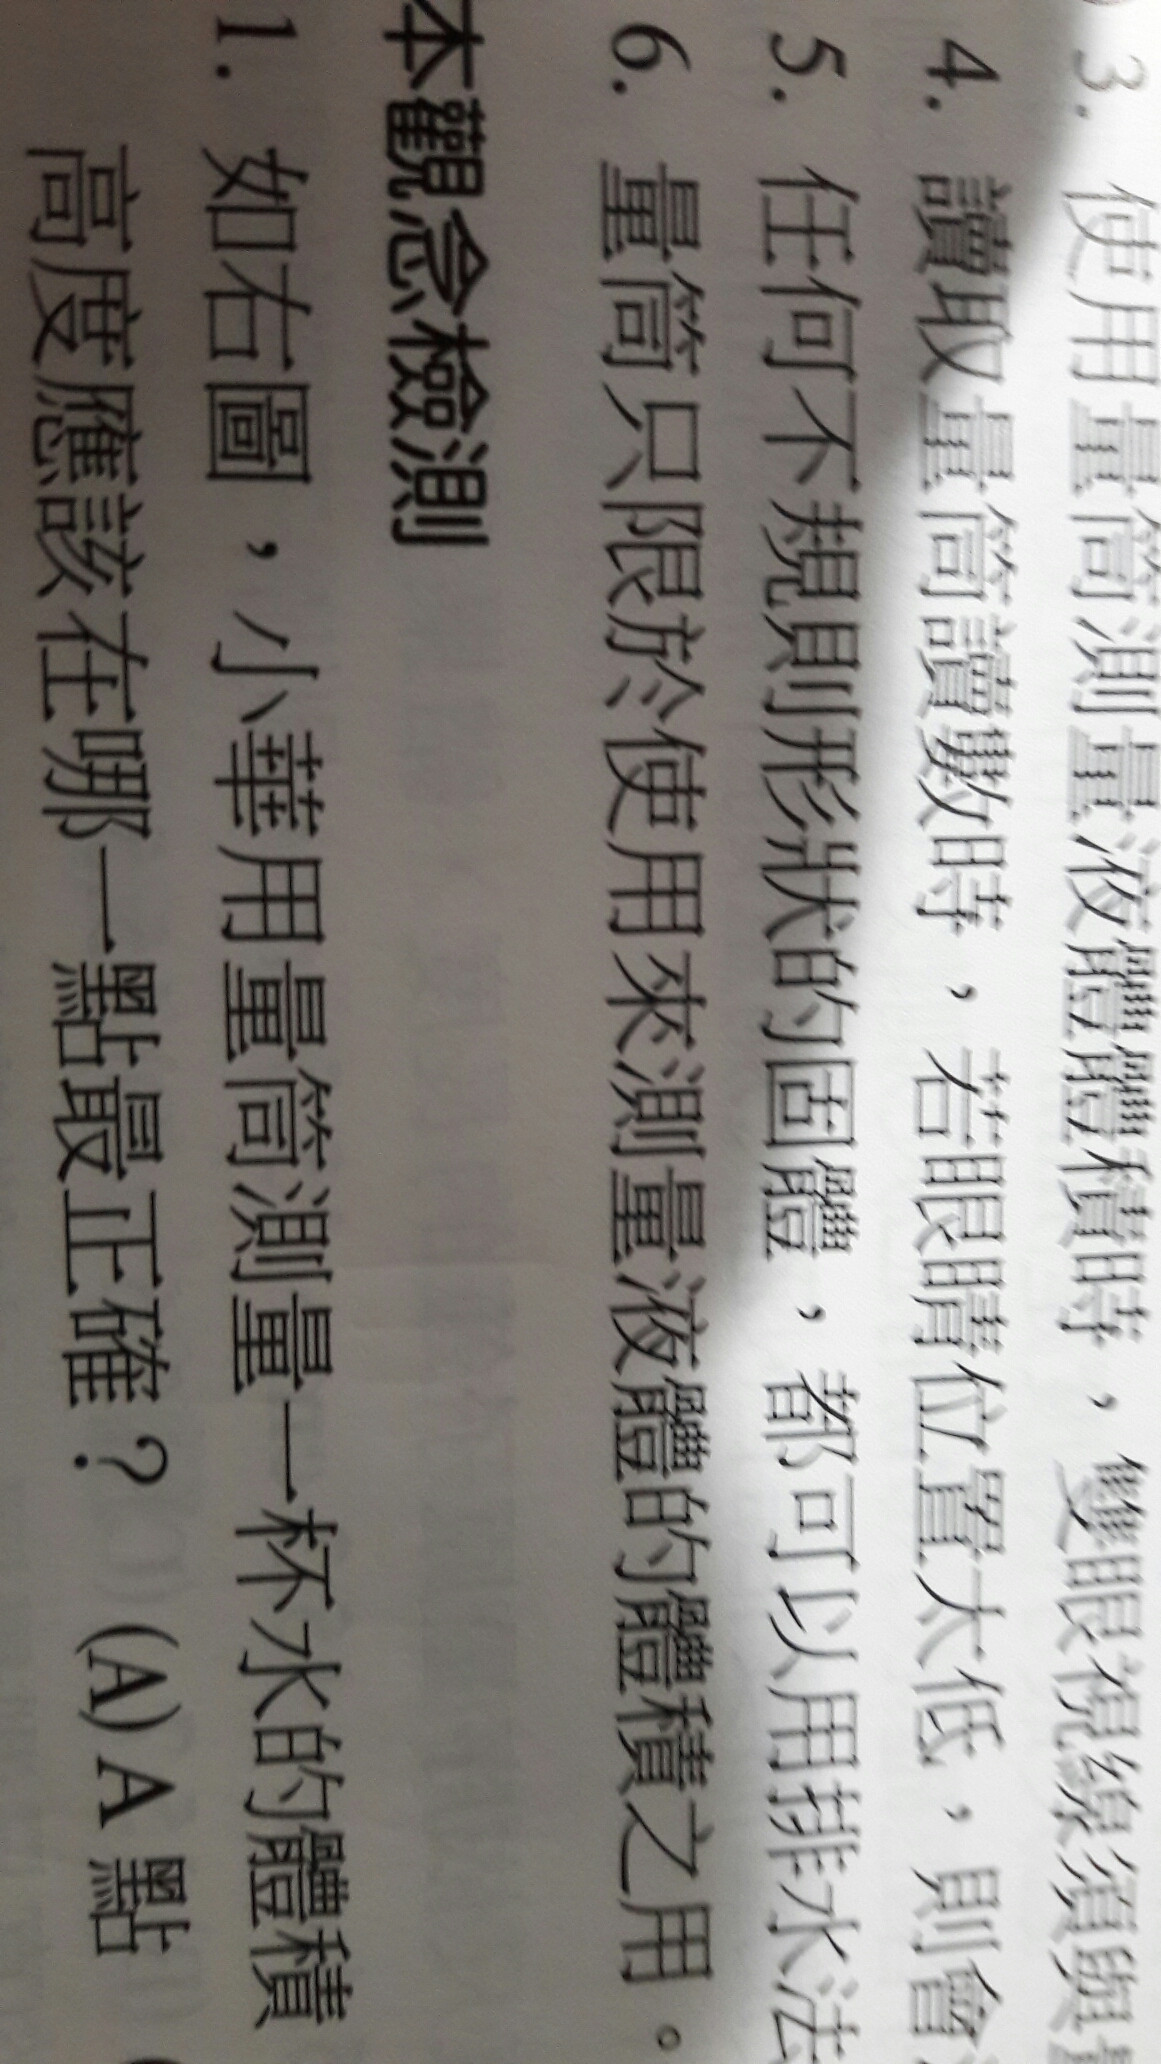 3. 使用量筒測量液體體積時，雙眼視線須與
4. 讀取量筒讀數時，若眼睛位置太低，則會
5. 任何不規則形狀的固體，都可以用排水法
6. 量筒只限於使用來測量液體的體積之用。
本觀念檢測
1. 如右圖，小華用量筒測量一杯水的體積
高度應該在哪一點最正確？(A) A 點